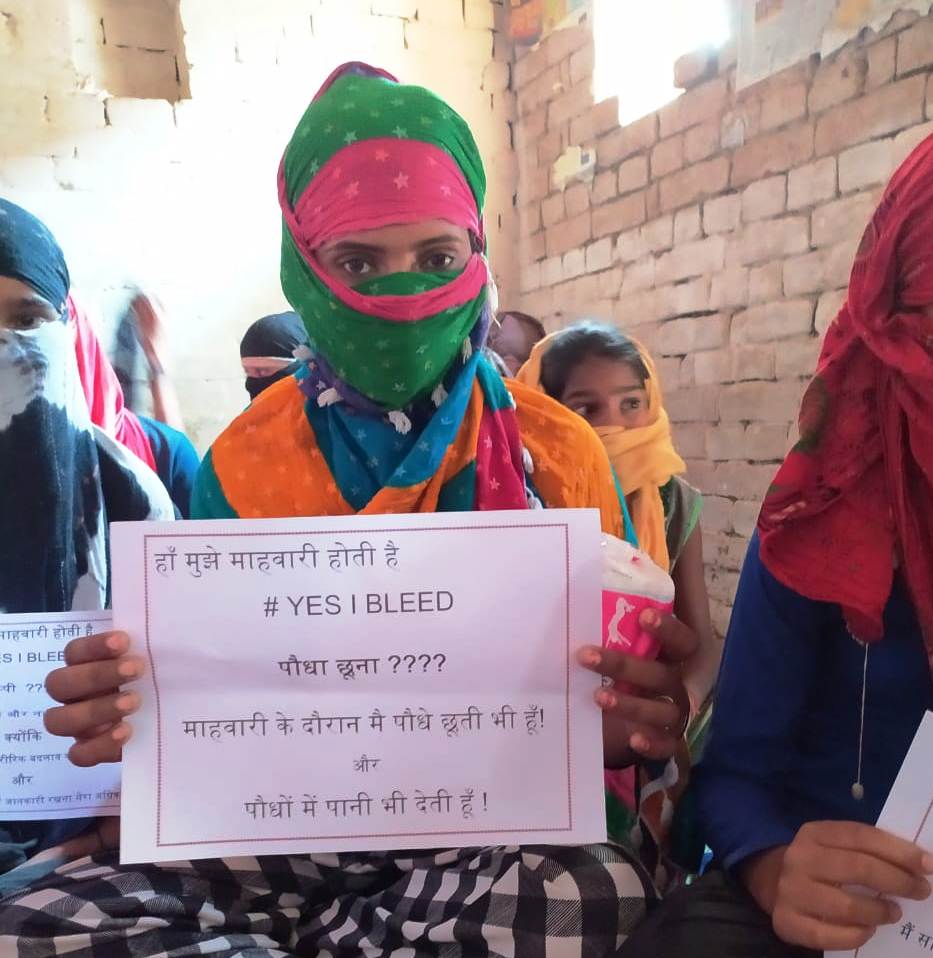 हाँ मुझे माहवारी होती है
# YES I BLEED
पौधा छूना ????
माहवारी के दौरान मै पौधे छूती भी हूँ!
और
पौधों में पानी भी देती हूँ !
माहवारी होती है
S I BLEE
??
और
क्योंकि
बदलाव
और
जानकारी रखना मेरा
मैं